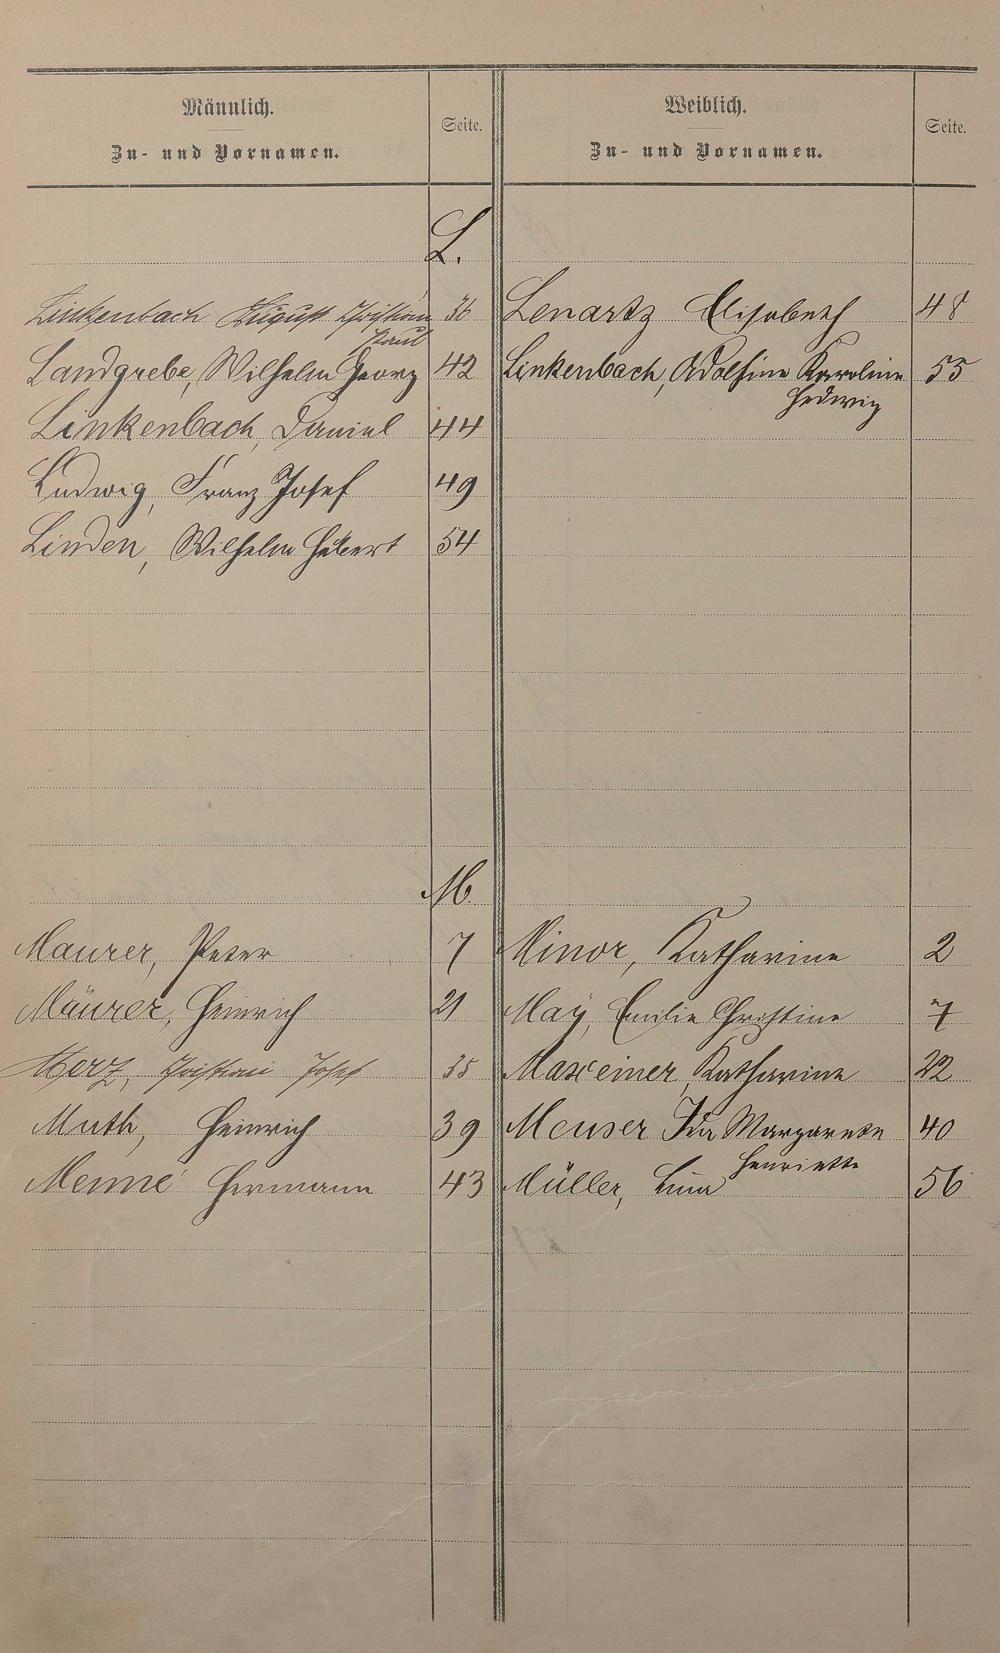 Männlich.
Zu- und Vornamen.
Seite.
Weiblich.
Zu- und Vornamen.
Seite.
L.
Linkenbach August Christian 36
Paul
Landgrebe, Wilhelm Georg 42
Linkenbach, Daniel 44
Ludwig, Franz Josef 49
Linden, Wilhelm Hubert 54
Lenartz Elisabeth 48
Linkenbach, Adolfine Karoline 55
Hedwig
M.
Maurer, Peter 7
Mäurer, Heinrich 21
Merz, Christian Josef 35
Muth, Heinrich 39
Menné Hermann 43
Minor, Katharine 2
Maÿ, Emilie Christine 7
Maxeiner, Katharine 22
Meuser Ida Margarete 40
Henriette
Müller, Lina 56